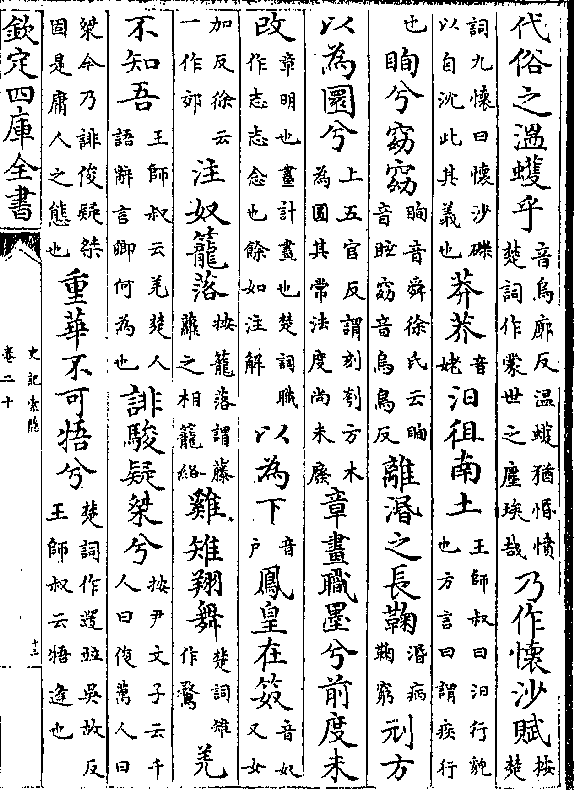 代俗之溫蠖乎音烏廓反溫蠖猶惛憒楚詞作蒙世之塵埃哉乃作懷沙賦按楚
詞九懷曰懷沙礫以自沈此其義也莽莽音姥汨徂南土王師叔曰汨行貌也方言曰謂疾行
也眴兮窈窈眴音舜徐氏云眴音眩窈音烏鳥反離湣之長鞠湣病鞠窮刓方
以為圜兮上五官反謂刻刓方木為圓其常法度尚未廢章畫職墨兮前度未
改章明也畫計畫也楚詞職作志志念也餘如注解以為下音戶鳳皇在笯音奴又女
加反徐云一作郊注奴籠落按籠落謂藤離之相籠絡雞雉翔舞楚詞雉作鶩羌
不知吾王師叔云羌楚人語辭言卿何為也誹駿疑桀兮按尹文子云千人曰俊萬人曰
桀今乃誹俊疑桀固是庸人之態也重華不可牾兮楚詞作遻並吳故反王師叔云牾逢也
欽定四庫全書
史記索隱
卷二十
十三